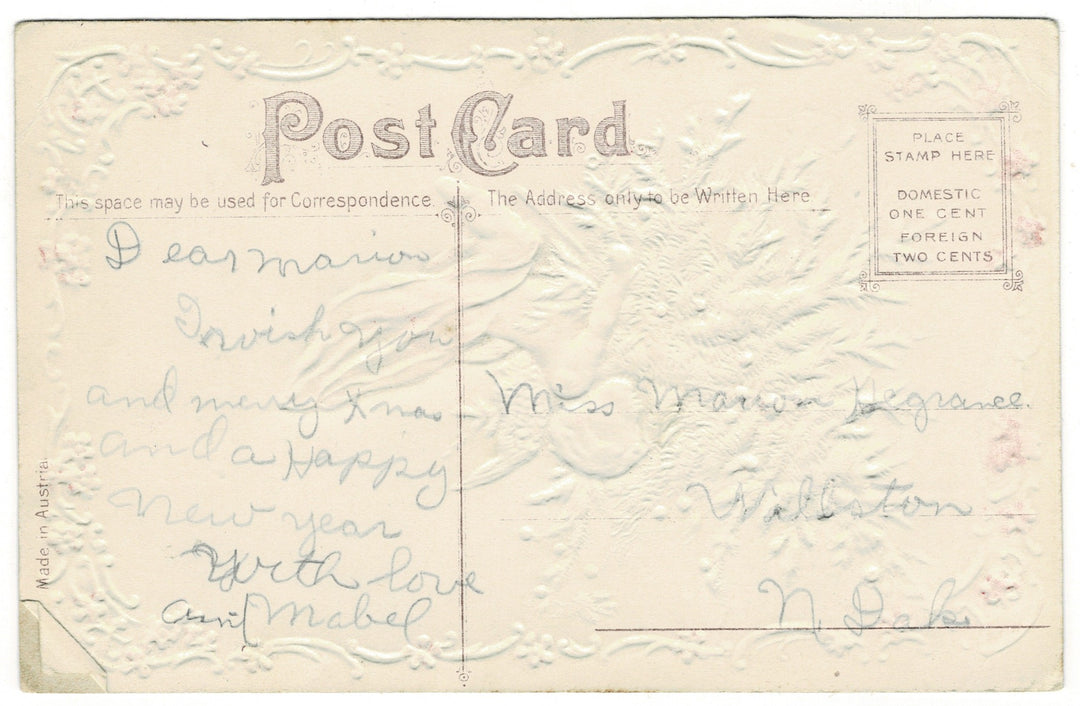 Post Card
This space may be used for Correspondence.
The Address only to be Written Here
PLACE
STAMP HERE
DOMESTIC
ONE CENT
FOREIGN
TWO CENTS
Dear Marion
I wish you
and merry Xmas
and a Happy
New year
With love
Mabel
Miss Marion Hegrance.
Williston
N Dak.
Made in Austria.